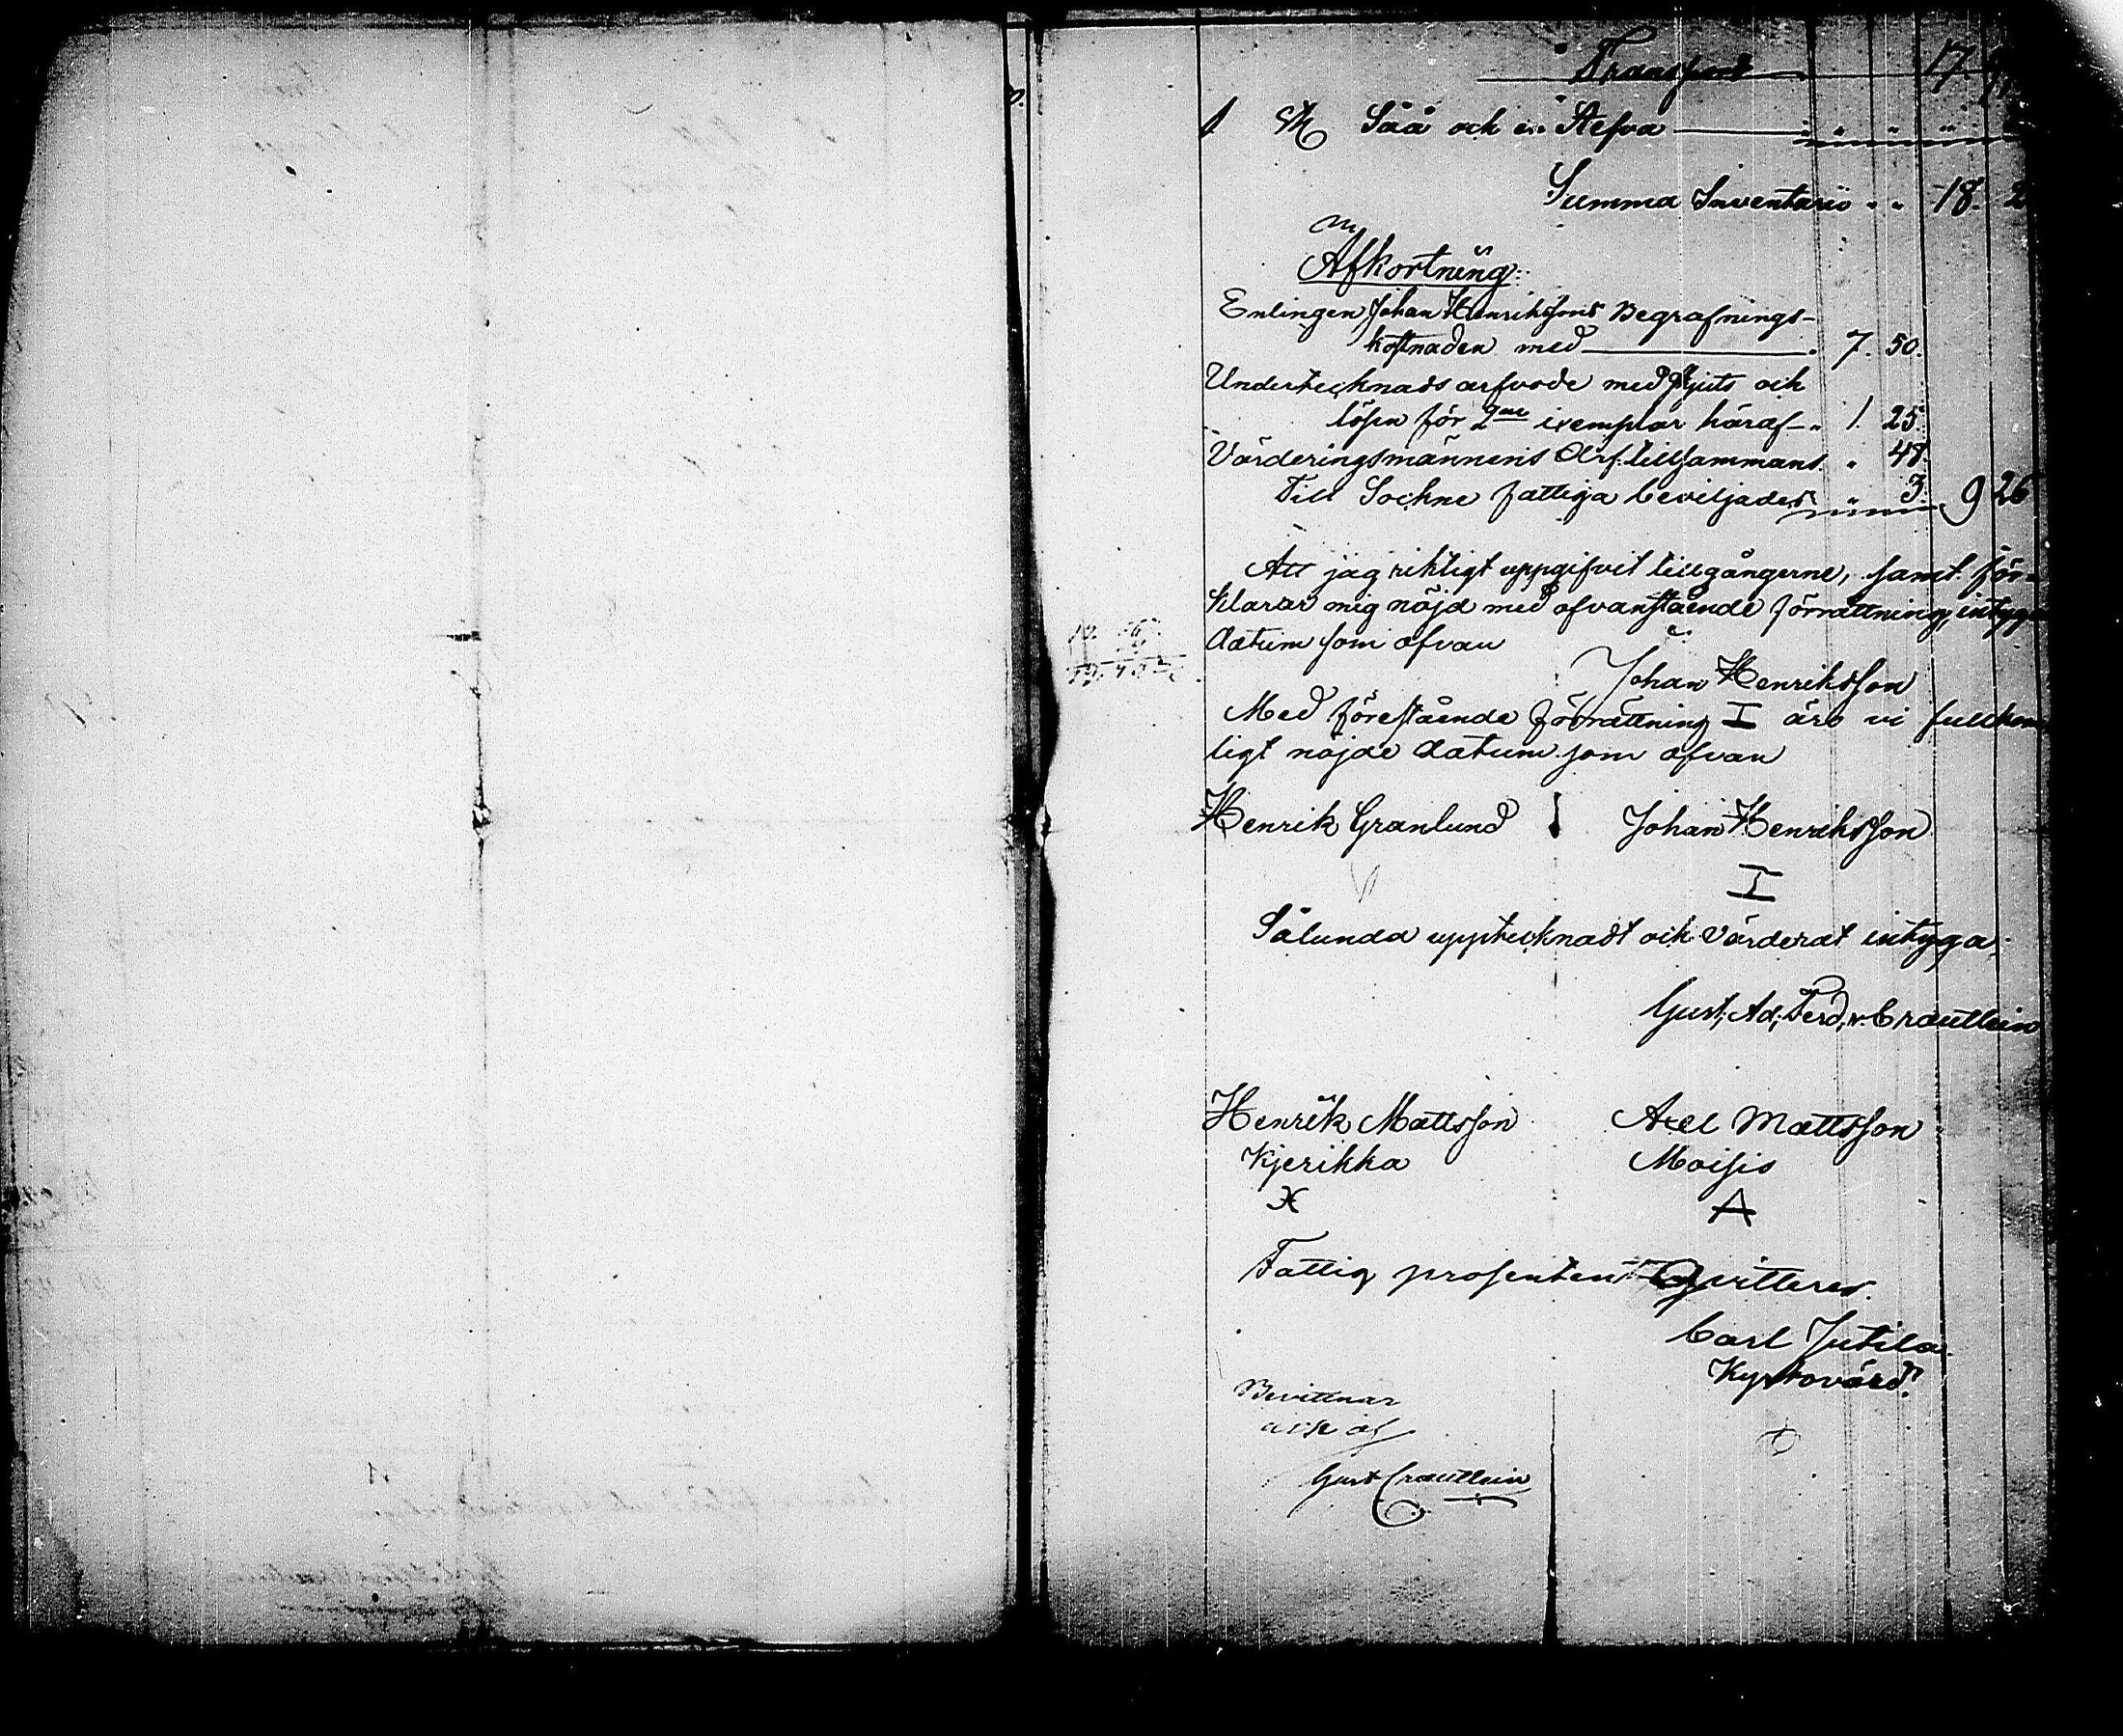 Transport 17.
1 st Såå och en Stefva " " "
Summa Inventarii " " 18. 2
Afkortning:
Enlingen Johan Henrikssons Begrafnings-
kostnaden med " 7. 50.
Undertecknads arfvode med skjuts och
lösen för 2ne exemplar häraf " 1. 25.
Värderingsmännens Arf. tillsammans " 48.
Till Sockne fattiga beviljades " 3. 9 26
Att jag riktigt uppgifvit tillgångerne, samt för-
klarar mig nöjd med ofvanstående förrättning, intygar
datum som ofvan
Johan Henriksson
Med förestående förrättning I äro vi fullkom
ligt nöjde datum som ofvan
Henrik Granlund Johan Henriksson
I
Sålunda upptecknadt och Värderat intyga;
Gust; Ad; Ferd; v. Crautlein
Henrik Mattsson Axel Mattsson
Kjerikka Moisis
A
Fattig prosenten Qvitteres.
Carl Jutila
Kyrkovärd.
Bevittnar
Gust Crautlein